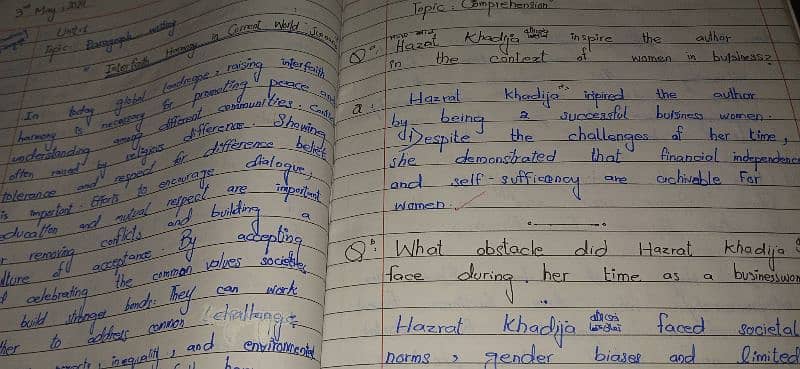 3rd May, 2024
Unit:1
Topic: Paragraph writing
" Interfaith Harmony in Current World:
In today global landscape, raising interfaith
harmony is necessary for promoting peace and
understanding among different communities.
often raised by religious difference. Showing
tolerance and respect for difference beliefs
is important. Efforts to encourage dialogue,
education and mutual respect are important
removing conflicts and building a
of acceptance. By accepting
celebrating the common values societies
build stronger bonds. They can work
to address common challenges
inequality, and environmental
Topic: Comprehension
Q: Hazrat Khadija inspire the author
in the context of women in buisiness?
a: Hazrat Khadija inpired the author
by being a successful buisness women.
Despite the challenges of her time,
she demonstrated that financial independence
and self-sufficancy are achivable For
women.
Q: What obstacle did Hazrat Khadija
face during her time as a
Hazrat Khadija faced societal
norms, gender biases and limited